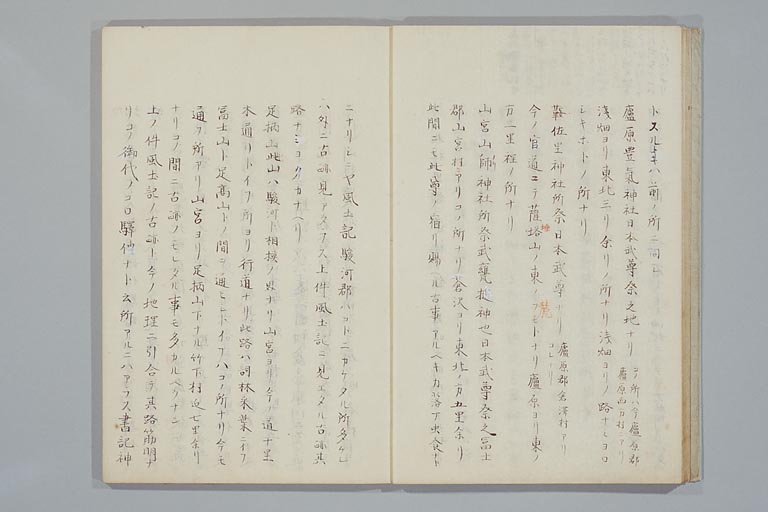 トスルトキハ前ノ所ニ同シ
廬原豊氣神社日本武尊祭之地ナリ
コノ所ハ今廬原郡
廬原西方村アリ
浅畑ヨリ東北三リ余リノ所ナリ浅畑ヨリノ路ナミヨロ
シキホトノ所ナリ
鞍佐里神社所祭日本武尊ナリ
廬原郡倉澤村アリ
コレナリ
今ノ官道ニテ薩埵山ノ東ノフモトナリ廬原ヨリ東ノ
麓
方二里程ノ所ナリ
山宮山師神社所祭武甕槌神也日本武尊祭之冨士
郡山宮村アリコノ所ナリ蒼沢ヨリ東北ノ方五里余リ
此間ニモ此尊ノ宿リ賜ヘル古事アルヘキカ落下虫食ナト
ニナリシニヤ風土記駿河郡ハコトニカケタル所多ケレ
ハ外ニ古跡見アタラス上件風土記ニ見エタル古跡其
路ナミヨクカナヘリ
足柄山此山ハ駿河ト相模ノ界ナリ山宮ヨリ今ノ道十里
木通リトイフ所ヨリ行道ナリ此路ハ詞林采葉ニイフ
冨士山ト足高山トノ間ヲ通シトイフハコノ所ナリ今モ
通フ所アリ山宮ヨリ足柄山下ナル竹下村迄七里余リ
ナリコノ間ニ古跡ノモレタル事モ多カルヘクナン
上ノ件風土記ノ古跡ト今ノ地理ニ引合テ其路筋明ナ
リコノ御代ノコロ驛使ナト云所アルニハアラス書記神